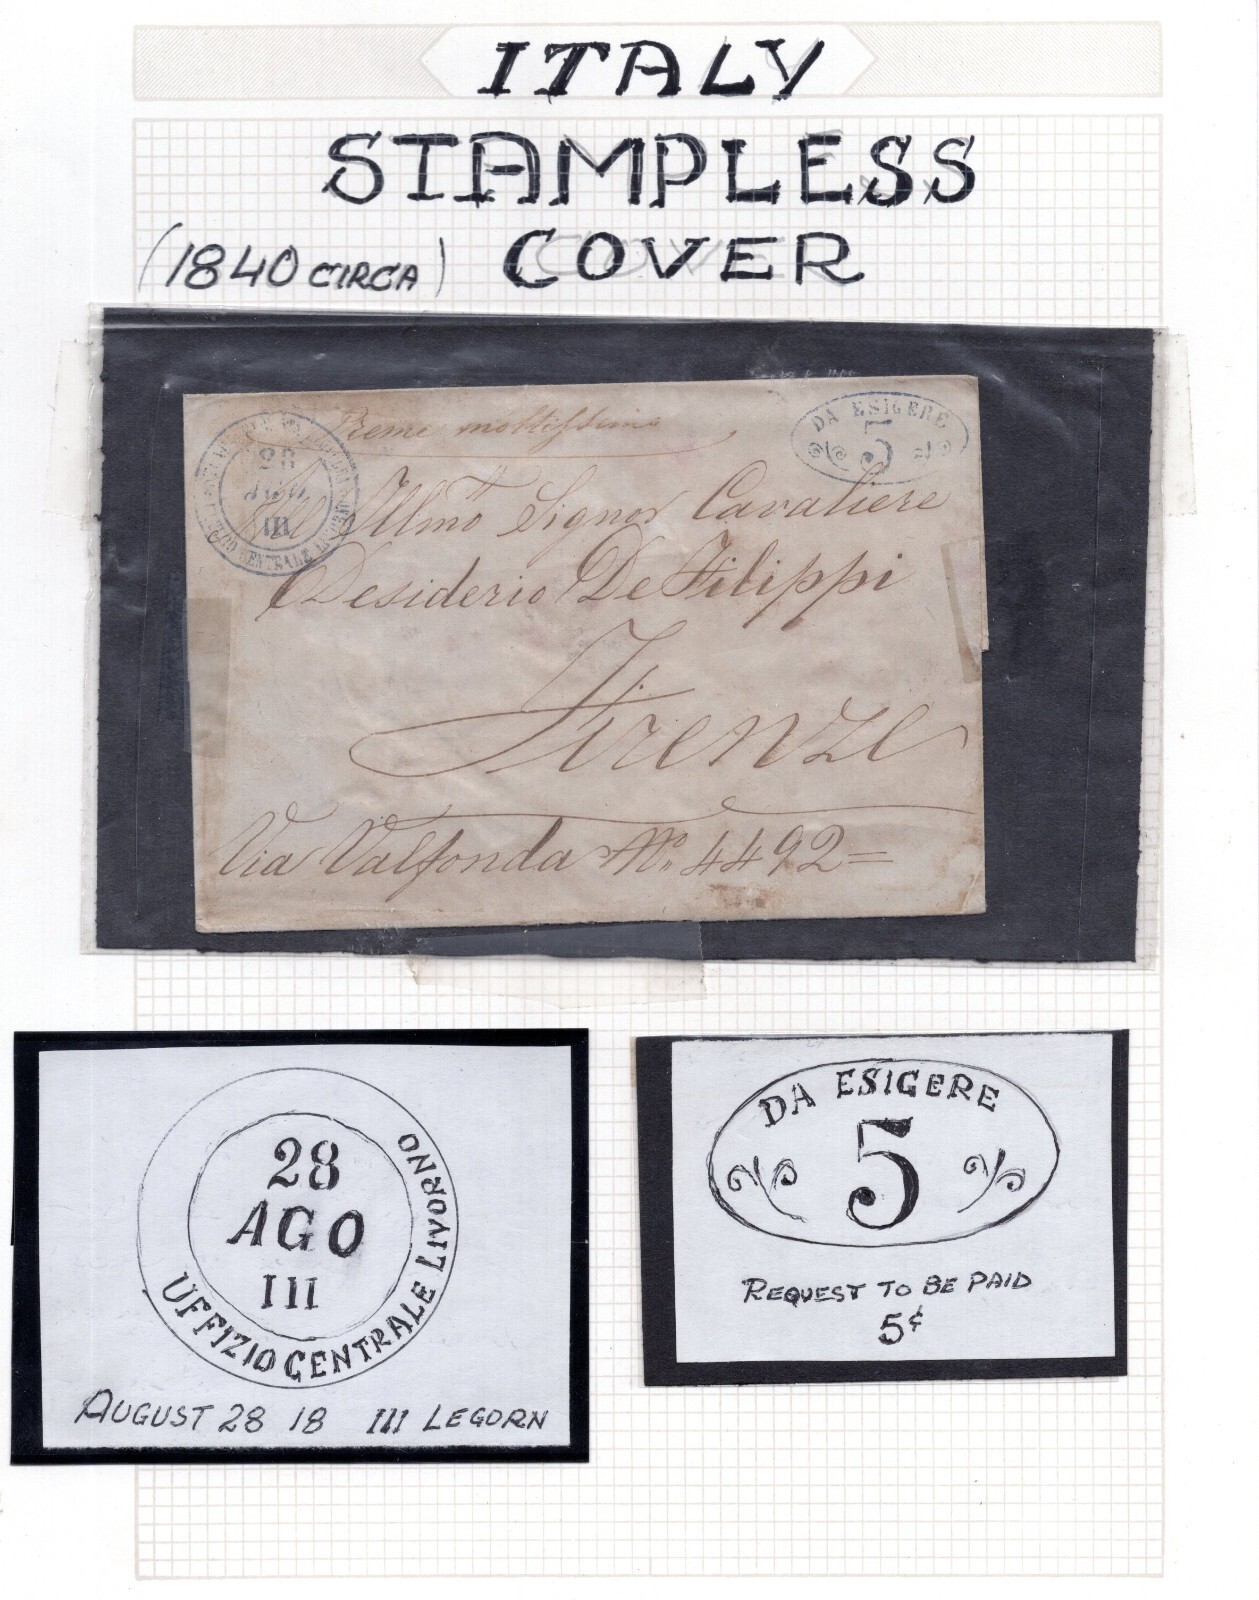 ITALY
STAMPLESS
(1840 CIRCA) COVER
Preme moltissimo
DA ESIGERE
5
28
AGO
III
CENTRALE
All Illmo Signor Cavaliere
Desiderio De Filippi
Firenze
Via Valfonda No. 4492=
28
AGO
III
UFFIZIO CENTRALE LIVORNO
AUGUST 28 18 III LEGORN
DA ESIGERE
5
REQUEST TO BE PAID
5¢